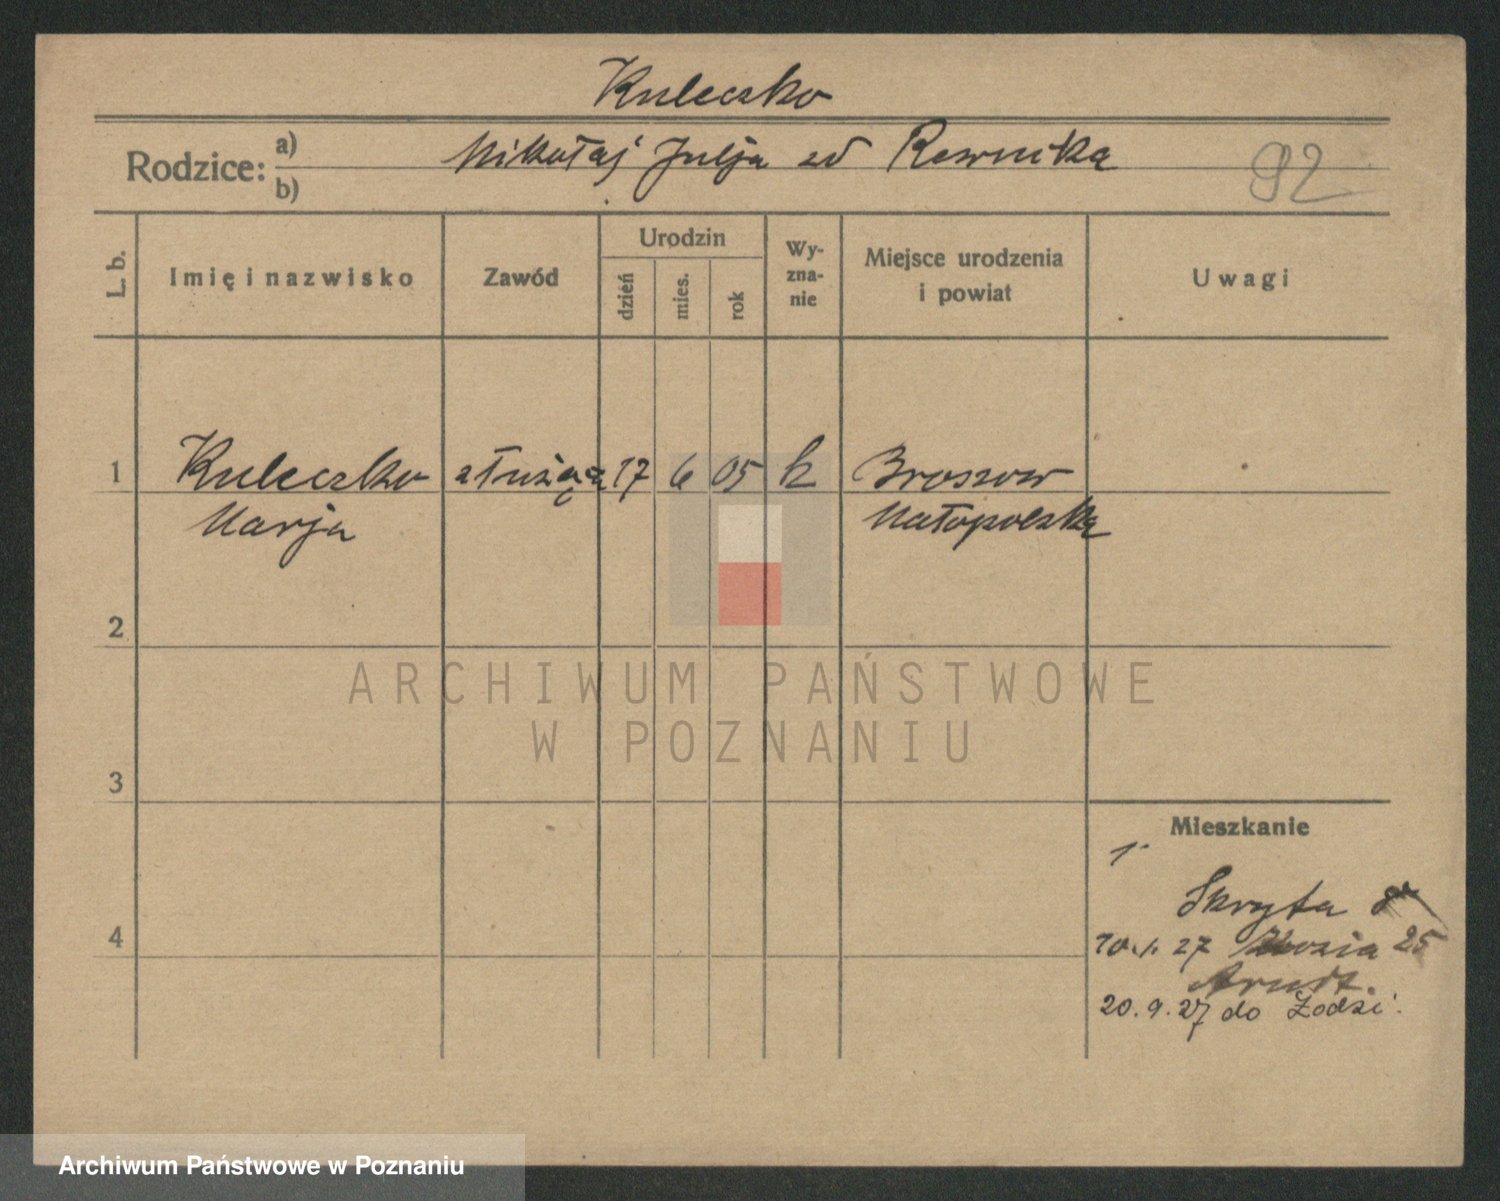 Kuleczko
Rodzice: a) b) Mikołaj Julja zd Rewnika
92
L. b. Imię i nazwisko Zawód Urodzin dzień mies. rok Wy-zna-nie Miejsce urodzenia i powiat Uwagi
1 Kuleczko służąca 17 6 05 k Broszow
Marja Małopolska
2
3
4
Mieszkanie
1.
Skryta 8
10.1.27 25
Arndt.
20.9.27 do Łodzi.
ARCHIWUM PAŃSTWOWE
W POZNANIU
Archiwum Państwowe w Poznaniu